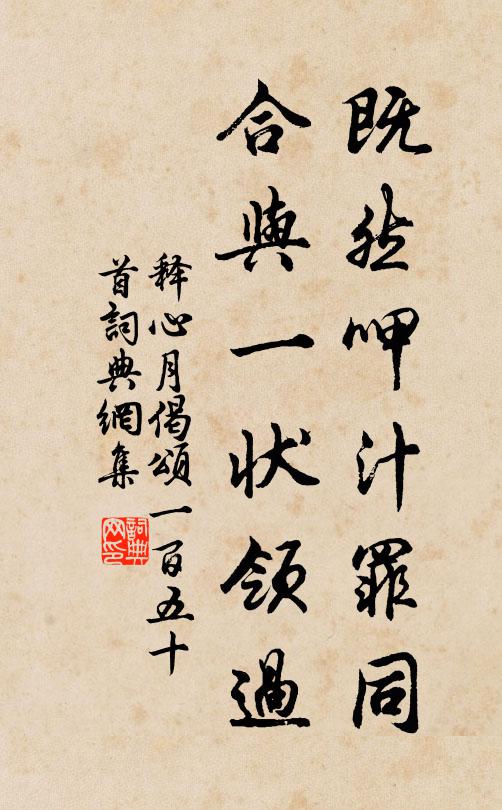 既然呷汁罪同
合與一状領過
释心月偈頌一百五十
首詞典網集
詞典
网印